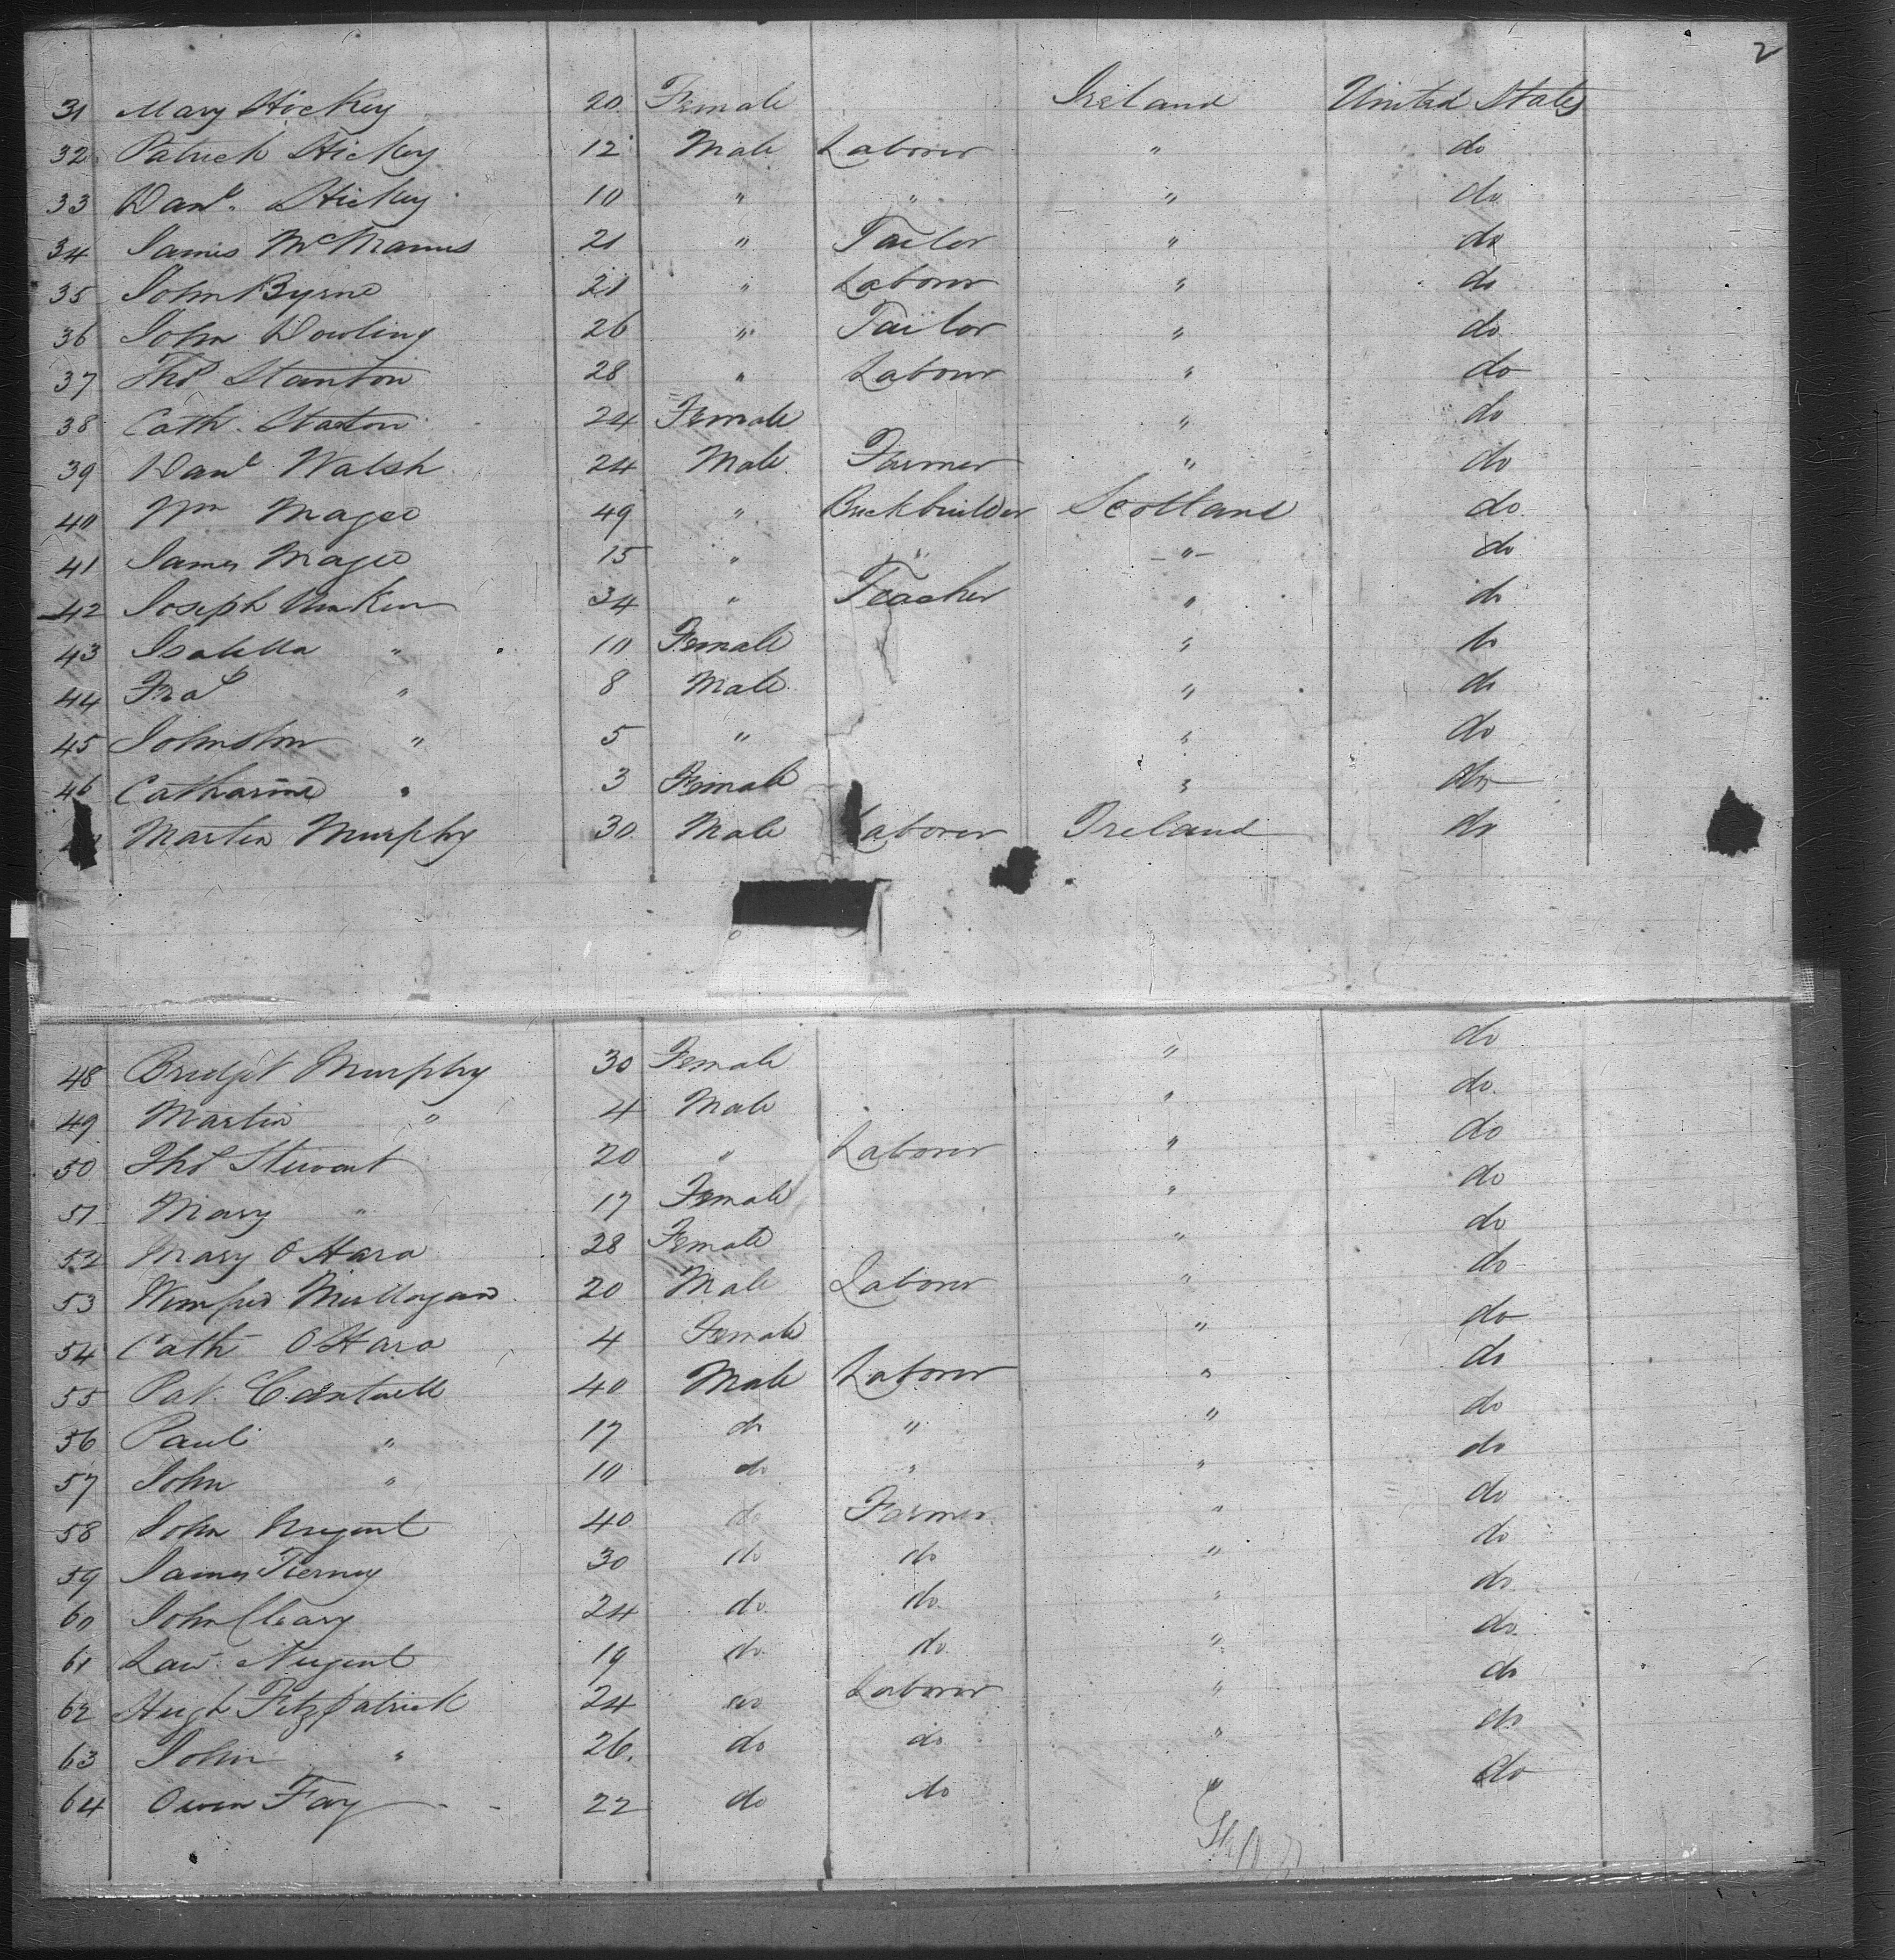 2
31 Mary Hickey 20 Female Ireland United States
32 Patrick Hickey 12 Male Laborer " do
33 Danl. Hickey 10 " " " do
34 James McManus 21 " Tailor " do
35 John Byrne 21 " Laborer " do
36 John Dowling 26 " Tailor " do
37 Thos Stanton 28 " Laborer " do
38 Cath. Staton 24 Female " do
39 Danl Walsh 24 Male Farmer " do
40 Wm Magee 49 " Brickbuilder Scotland do
41 James Magee 15 " " " do
42 Joseph 34 " Teacher " do
43 Isabella " 10 Female " do
44 " 8 Male " do
45 Johnston " 5 " " do
46 Catharine " 3 Female " do
Martin Murphy 30 Male Laborer Ireland do
48 Bridget Murphy 30 Female " do
49 Martin " 4 Male " do
50 Thos Stewart 20 " Laborer " do
51 Mary " 17 Female " do
52 Mary O Hara 28 Female " do
53 Mullogan 20 Male Laborer " do
54 Cath O Hara 4 Female " do
55 Pat. Cantwell 40 Male Laborer " do
56 Paul " 17 do " " do
57 John " 10 do " " do
58 John Nugent 40 do Farmer " do
59 James Tierney 30 do do " do
60 John Cleary 24 do do " do
61 Law. Nugent 19 do do " do
62 Hugh Fitzpatrick 24 do Laborer " do
63 John " 26 do do " do
64 Owen Fay 22 do do " do